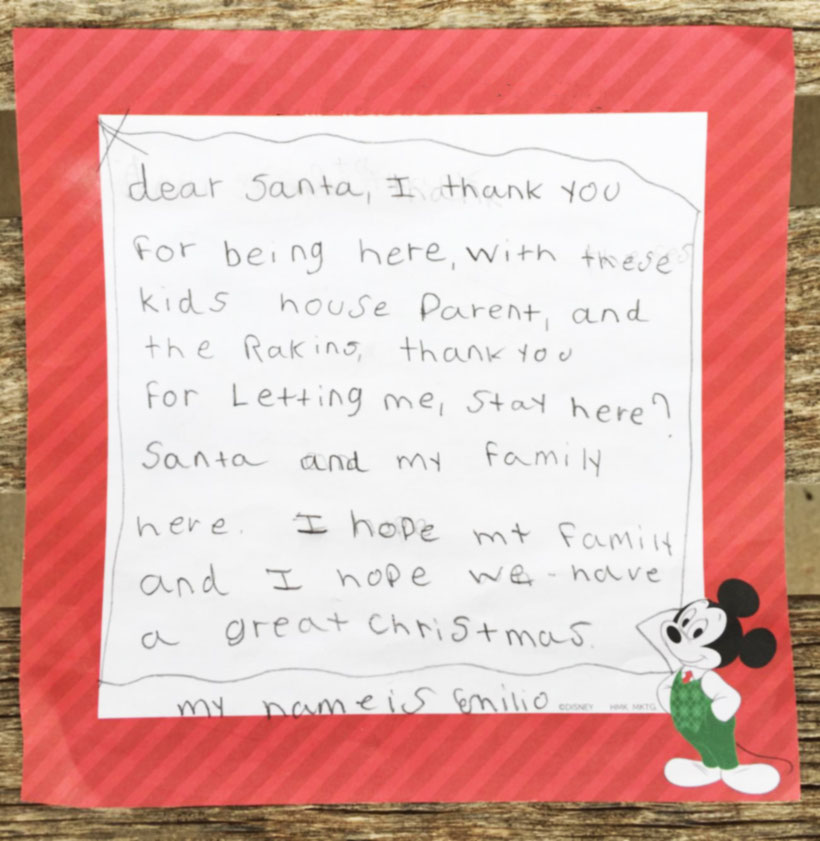 dear Santa, I thank you
for being here, with these
kids house Parent, and
the Rakins, thank you
for Letting me, stay here?
Santa and my family
here. I hope my family
and I hope we-have
a great christmas.
my name is Emilio
©DISNEY HMK MKTG